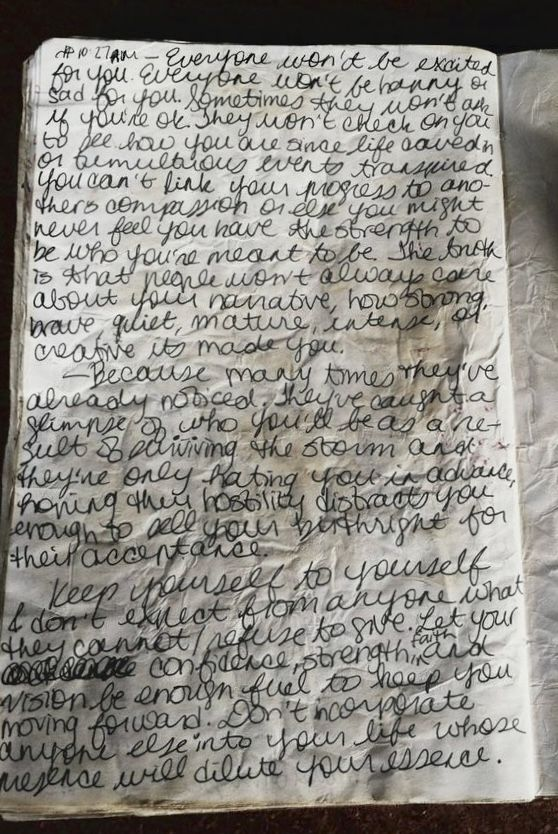 # 10:27AM - Everyone won't be excited
for you. Everyone won't be happy or
sad for you. Sometimes they won't ask
if you're ok. They won't check on you
to see how you are since life caved in
or tumultuous events transpired.
You can't link your progress to ano-
thers compassion or else you might
never feel you have the strength to
be who you're meant to be. The truth
is that people won't always care
about your narrative, how strong,
brave, quiet, mature, intense, or
creative its made you.
- Because many times they've
already noticed. They've caught a
glimpse of who you'll be as a re-
sult of surviving the storm and
they're only hating you in advance,
hoping their hostility distracts you
enough to sell your birthright for
their acceptance.
Keep yourself to yourself
& don't expect from anyone what
they cannot/refuse to give. Let your
confidence, strength, faith in and
vision be enough fuel to keep you
moving forward. Don't incorporate
anyone else into your life whose
presence will dilute your essence.